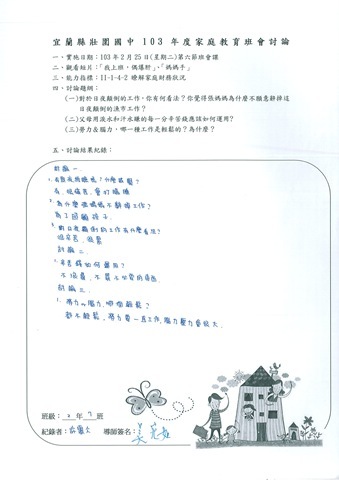 宜蘭縣壯圍國中 103 年度家庭教育班會討論
一、實施日期：103 年 2 月 25 日(星期二)第六節班會課
二、觀看短片：「我上班，偶爆肝」、「媽媽手」
三、能力指標：II-1-4-2 瞭解家庭財務狀況
四、討論題綱：
(一)對於日夜顛倒的工作，你有何看法？你覺得張媽媽為什麼不願意辭掉這
日夜顛倒的漁市工作？
(二)父母用淚水和汗水賺的每一分辛苦錢應該如何運用？
(三)勞力&腦力，哪一種工作是輕鬆的？為什麼？
五、討論結果紀錄：
討論一.
2.為什麼張媽媽不辭掉工作？
為了照顧孩子.
3.對日夜顛倒的工作有什麼看法？
很辛苦、很累
討論二.
1.辛苦錢如何運用？
不浪費、不買不必要的東西
討論三.
1.勞力or腦力，哪個輕鬆？
都不輕鬆，勞力要一直工作，腦力壓力會很大.
班級：2 年 7 班
紀錄者： 導師簽名：